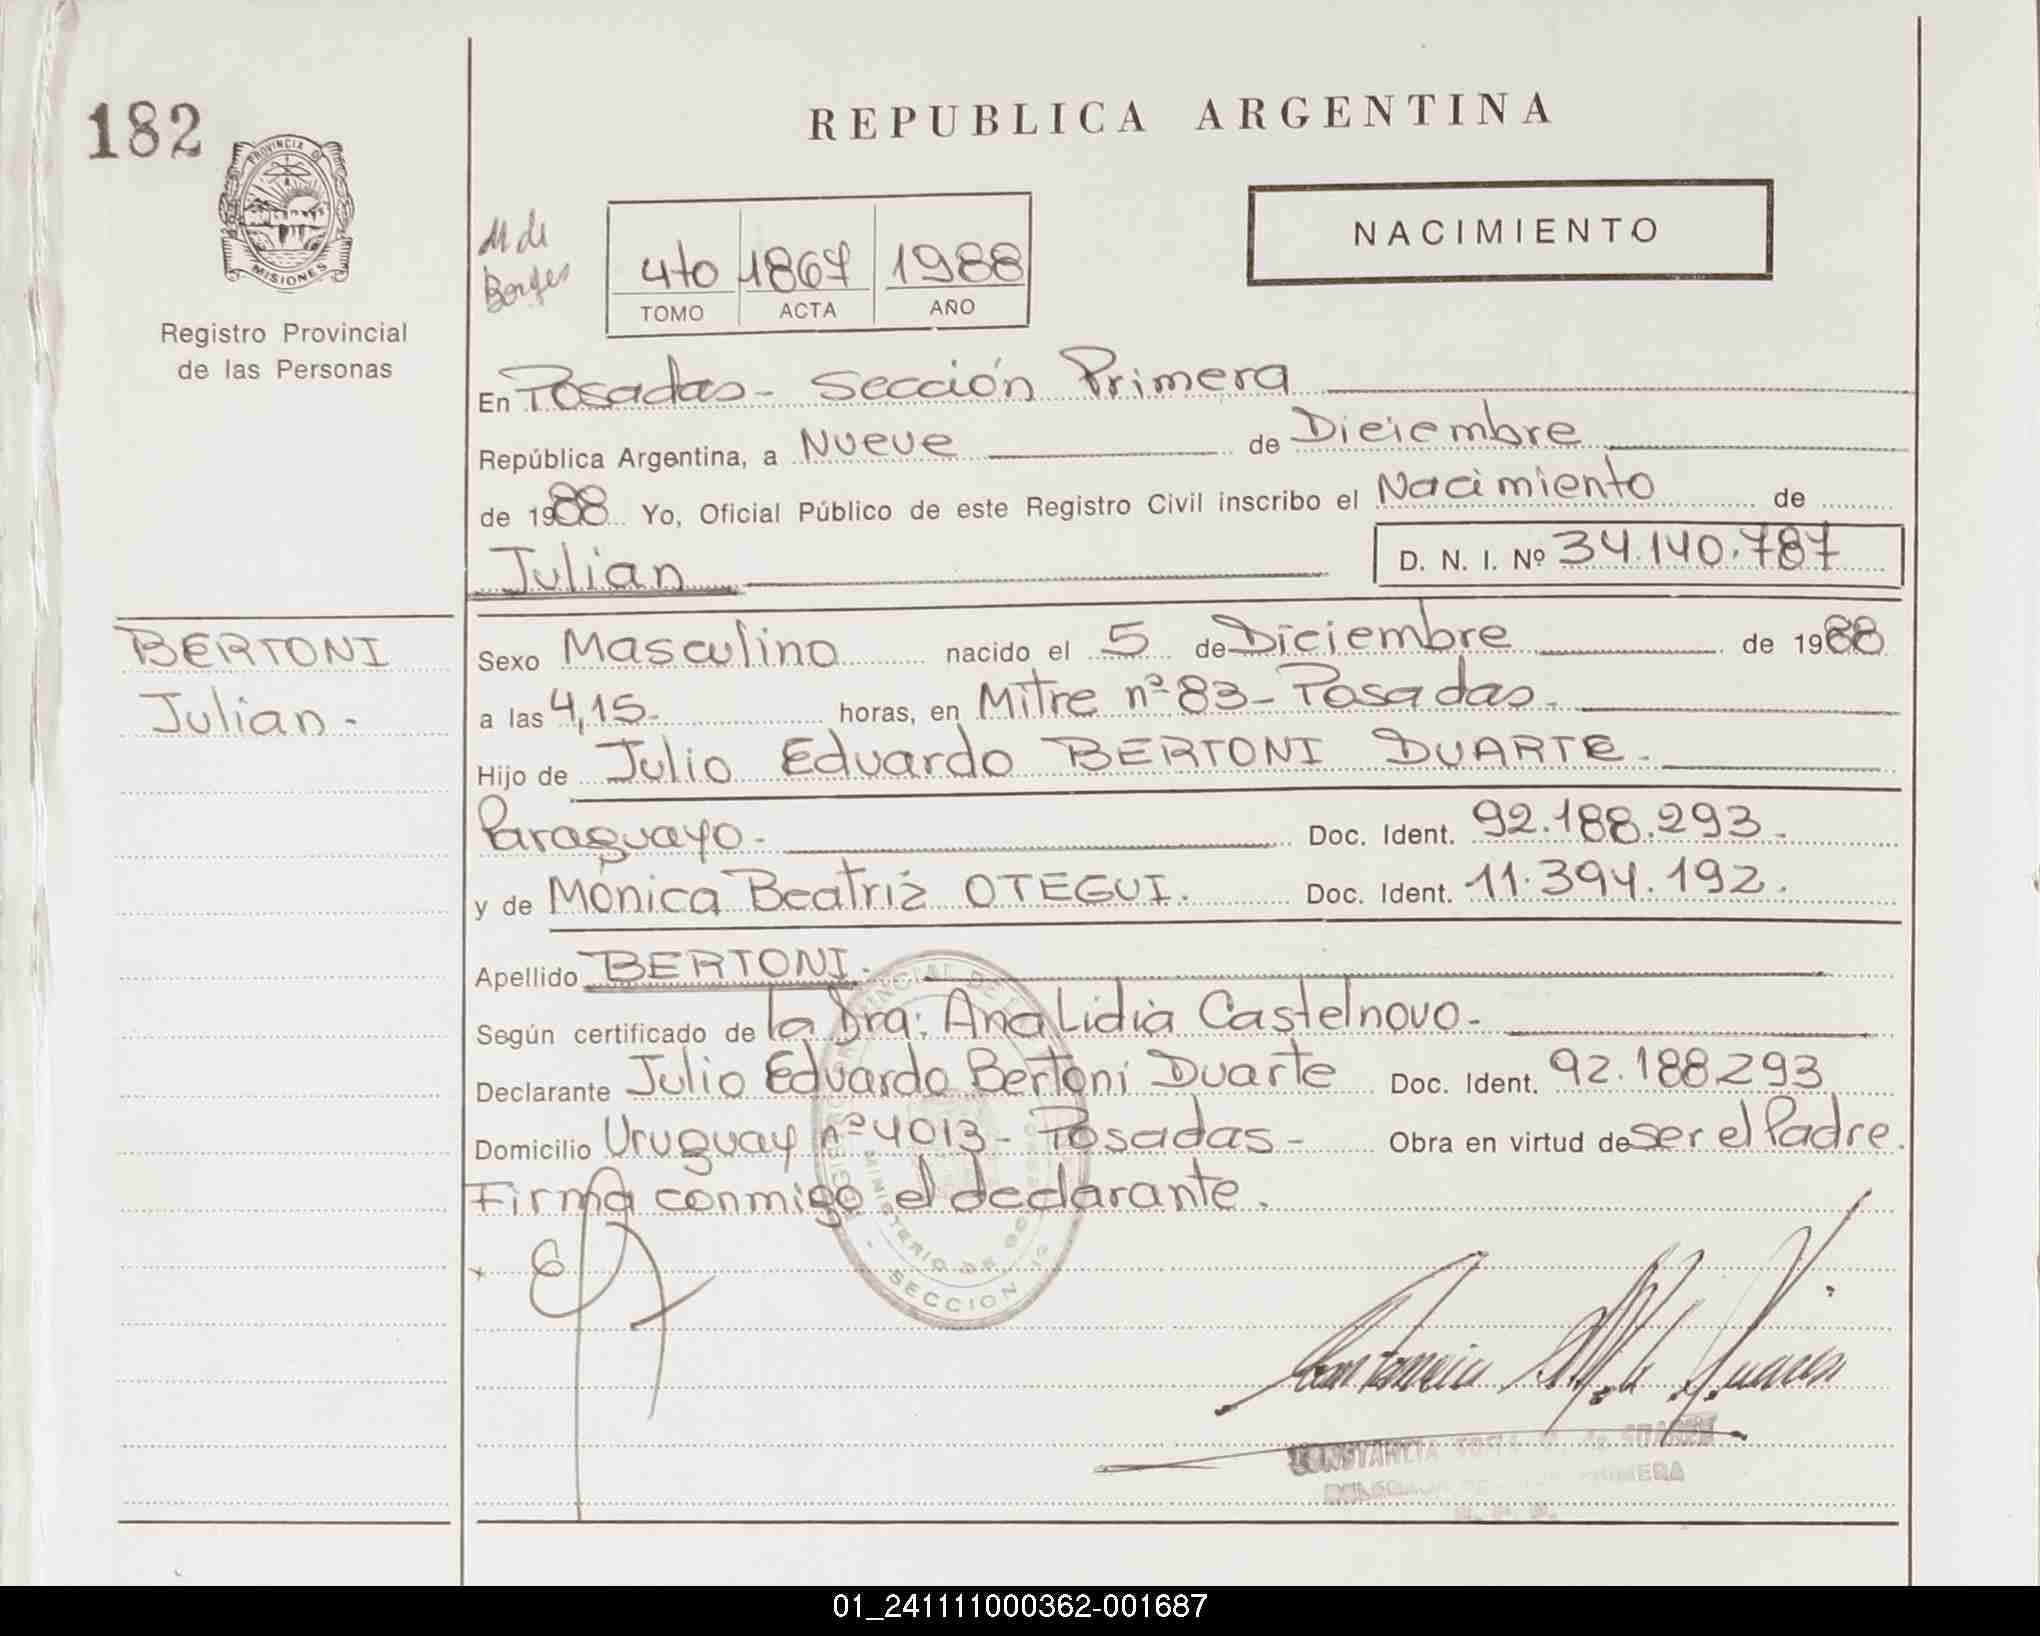 182
REPUBLICA ARGENTINA
PROVINCIA D
MISIONES
Registro Provincial
de las Personas
NACIMIENTO
M de
4to 1867 1988
TOMO ACTA AÑO
En Posadas - Sección Primera
República Argentina, a Nueve de Diciembre
de 1988 Yo, Oficial Público de este Registro Civil inscribo el Nacimiento de
Julian D. N. I. Nº 34.140.787
BERTONI
Julian -
Sexo Masculino nacido el 5 de Diciembre de 1988
a las 4,15 horas, en Mitre nº 83 - Posadas.
Hijo de Julio Eduardo BERTONI DUARTE.
Paraguayo. Doc. Ident. 92.188.293.
y de Mónica Beatriz OTEGUI. Doc. Ident. 11.394.192.
Apellido BERTONI.
Según certificado de la Dra: Ana Lidia Castelnovo.
Declarante Julio Eduardo Bertoni Duarte Doc. Ident. 92.188293
Domicilio Uruguay nº 4013 - Posadas - Obra en virtud de ser el Padre.
Firma conmigo el declarante.
MINISTERIO DE GO
SECCION 1º
CONSTANCIA SOFIA de SUAREZ
PRIMERA
01_241111000362-001687